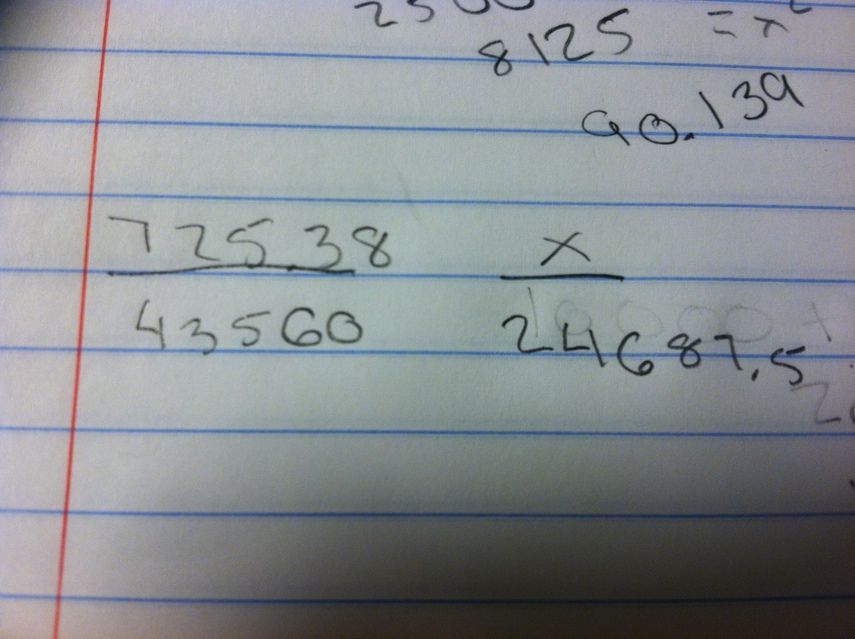 8125 = x²
90.139
725.38 x
43560 24687.5